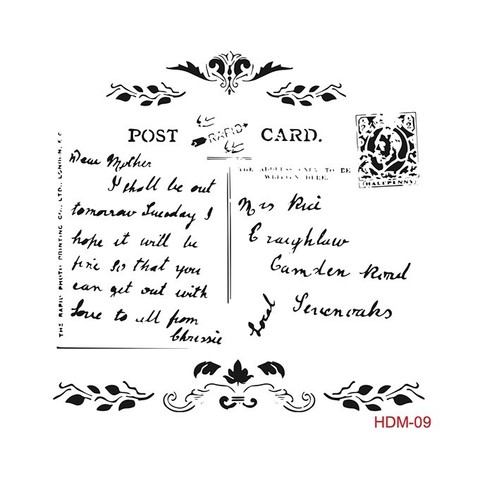 POST CARD.
RAPID
THE ADDRESS ONLY TO BE
WRITTEN HERE.
HALFPENNY
THE RAPID PHOTO PRINTING CO., LTD., LONDON, E.C
Dear Mother
I shall be out
tomorrow Tuesday I
hope it will be
fine so that you
can get out with
Love to all from
Chrissie
Mrs Rice
Craighlaw
Camden Road
Sevenoaks
Local
HDM-09